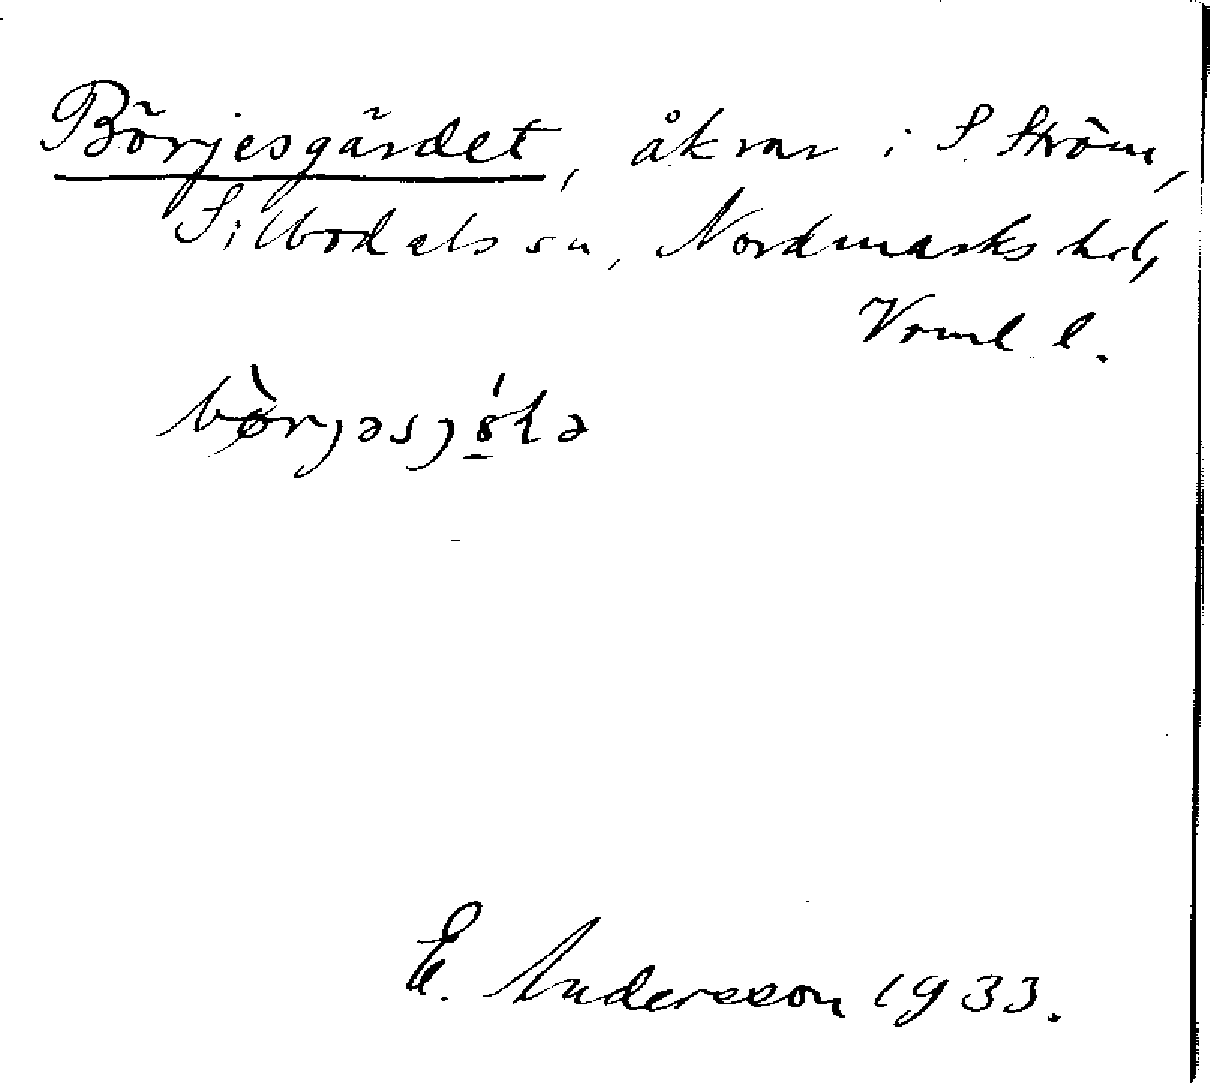 Börjesgärdet, åkrar i S. Ström,
Silbodals sn, Nordmarks hd,
Vrml l.
E. Andersson 1933.